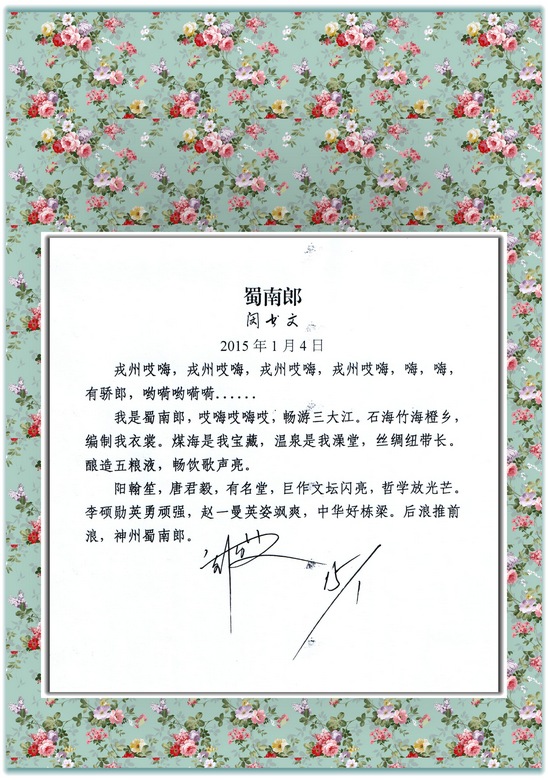 蜀南郎
闵书文
2015年1月4日
戎州哎嗨，戎州哎嗨，戎州哎嗨，戎州哎嗨，嗨，嗨，
有骄郎，哟嗬哟嗬嗬......
我是蜀南郎，哎嗨哎嗨哎，畅游三大江。石海竹海橙乡，
编制我衣裳。煤海是我宝藏，温泉是我澡堂，丝绸纽带长。
酿造五粮液，畅饮歌声亮。
阳翰笙，唐君毅，有名堂，巨作文坛闪亮，哲学放光芒。
李硕勋英勇顽强，赵一曼英姿飒爽，中华好栋梁。后浪推前
浪，神州蜀南郎。
15/1